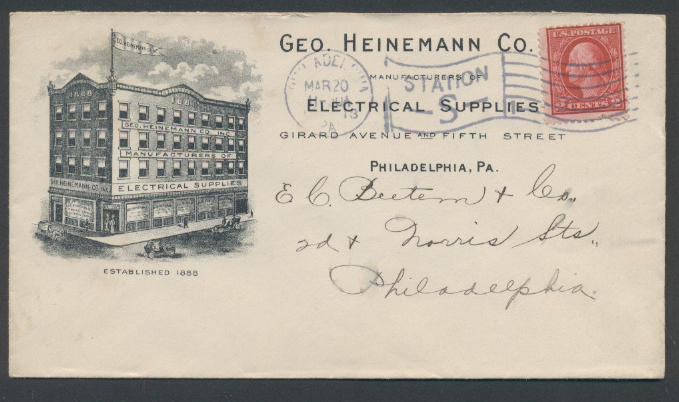 GEO. HEINEMANN CO.
MANUFACTURERS OF
ELECTRICAL SUPPLIES
GIRARD AVENUE AND FIFTH STREET
PHILADELPHIA, PA.
U.S. POSTAGE
2 CENTS 2
PHILADELPHIA
MAR 20
13
PA.
STATION
S
GEO. HEINEMANN CO. INC.
MANUFACTURERS OF
ELECTRICAL SUPPLIES
GEO. HEINEMANN CO. INC.
ESTABLISHED 1888
E. C. Beetem & Co.,
2d & Norris Sts.,
Philadelphia.